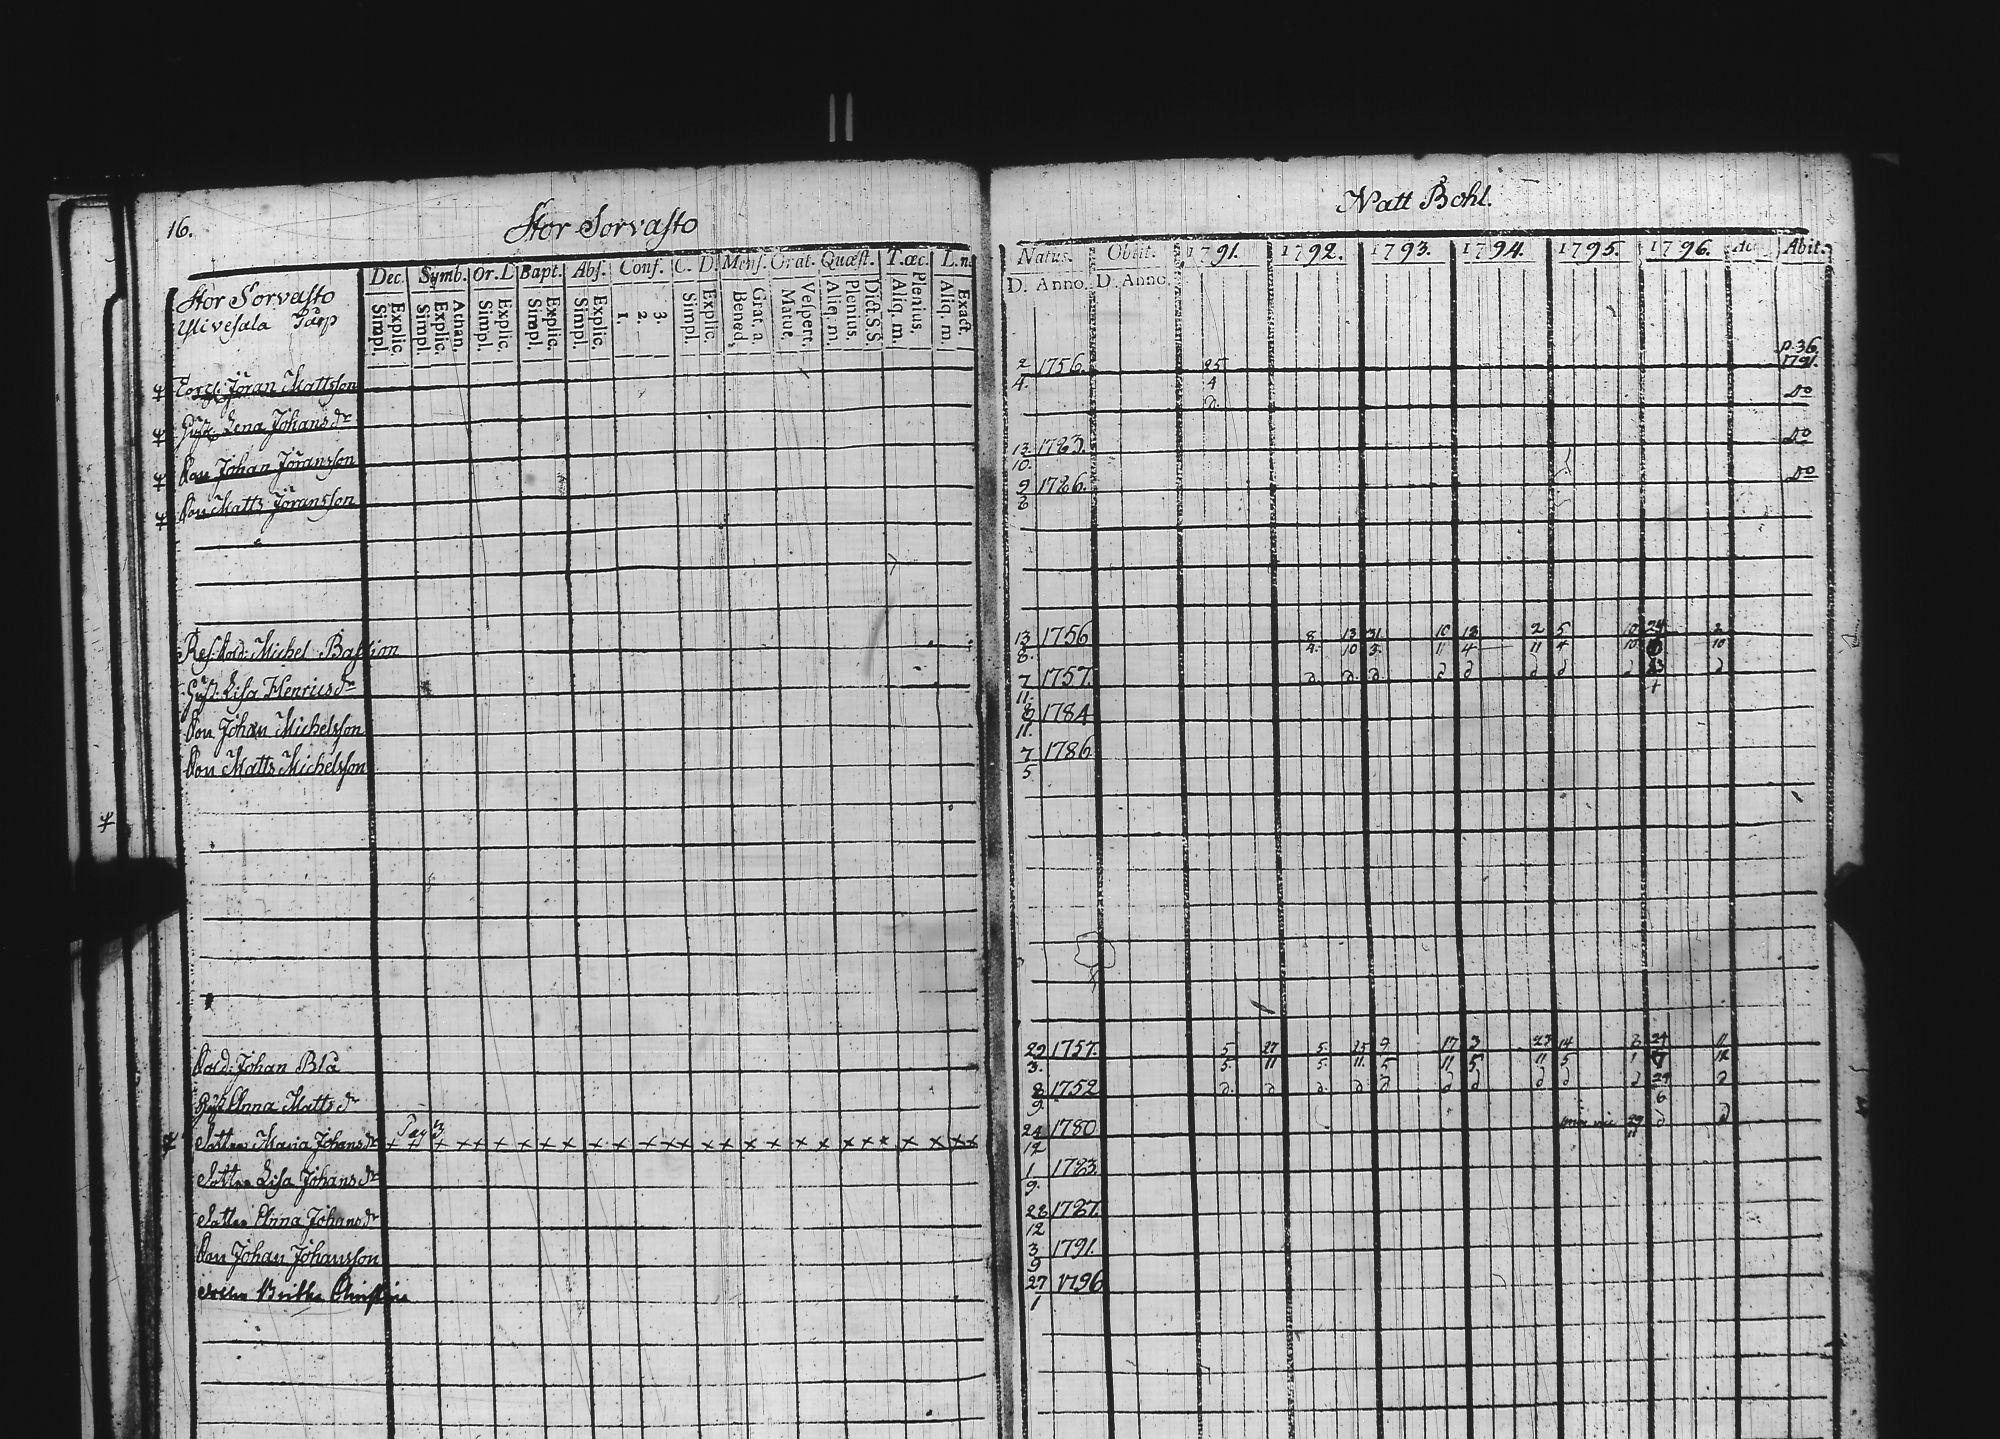 16.
Stor Sorvasto
Dec. Symb. Or. L Bapt. Abs. Conf. C. D. Mens. Orat. Quæst. T.œc. L.n.
Simpl. Explic. Simpl. Explic. Athan. Simpl. Explic. Simpl. Explic. Simpl. Explic. 1. 2. 3. Simpl. Explic. Bened. Grat. a. Matut. Vespert. Aliq. m. Plenius. Dict. S. S. Aliq. m. Plenius. Aliq. m. Exact.
Stor Sorvasto
Ylivesala
Jöran Mattsson
Lena Johans dr
Son Johan Jöransson
Son Matts Jöransson
Michel Bastion
Lisa Henrics dr
Son Johan Michelsson
Son Matts Michelsson
Sold: Johan Blå
Anna Matts dr
Maria Johans dr
Lisa Johans dr
Anna Johans dr
Son Johan Johansson
Britha Christina
Natt Bohl.
Natus. Obiit. 1791. 1792. 1793. 1794. 1795. 1796. Ac Abit.
D. Anno. D. Anno.
2 1756. 25 p. 36.
4. 4 1791.
d. Do
13 1783. Do
10.
9 1786. Do
8
13 1756 8 13 31 10 18 2 5 10 24 2
8. 4. 10 3. 11 4 11 4 10 10
7 1757. d. d. d d d d d d 23 d
11.
8 1784
11.
7 1786
5
29 1757. 5 27 5 25 9 17 3 23 14 8 24 11
3. 5. 11 5. 11. 5 11 5 11 5 1 12
8 1752 d. d d. d d d d d d d 24 d
9. 6
24 1780 29 d d
12 11
1 1783.
9.
28 1787.
12
3 1791.
9
27 1796
1